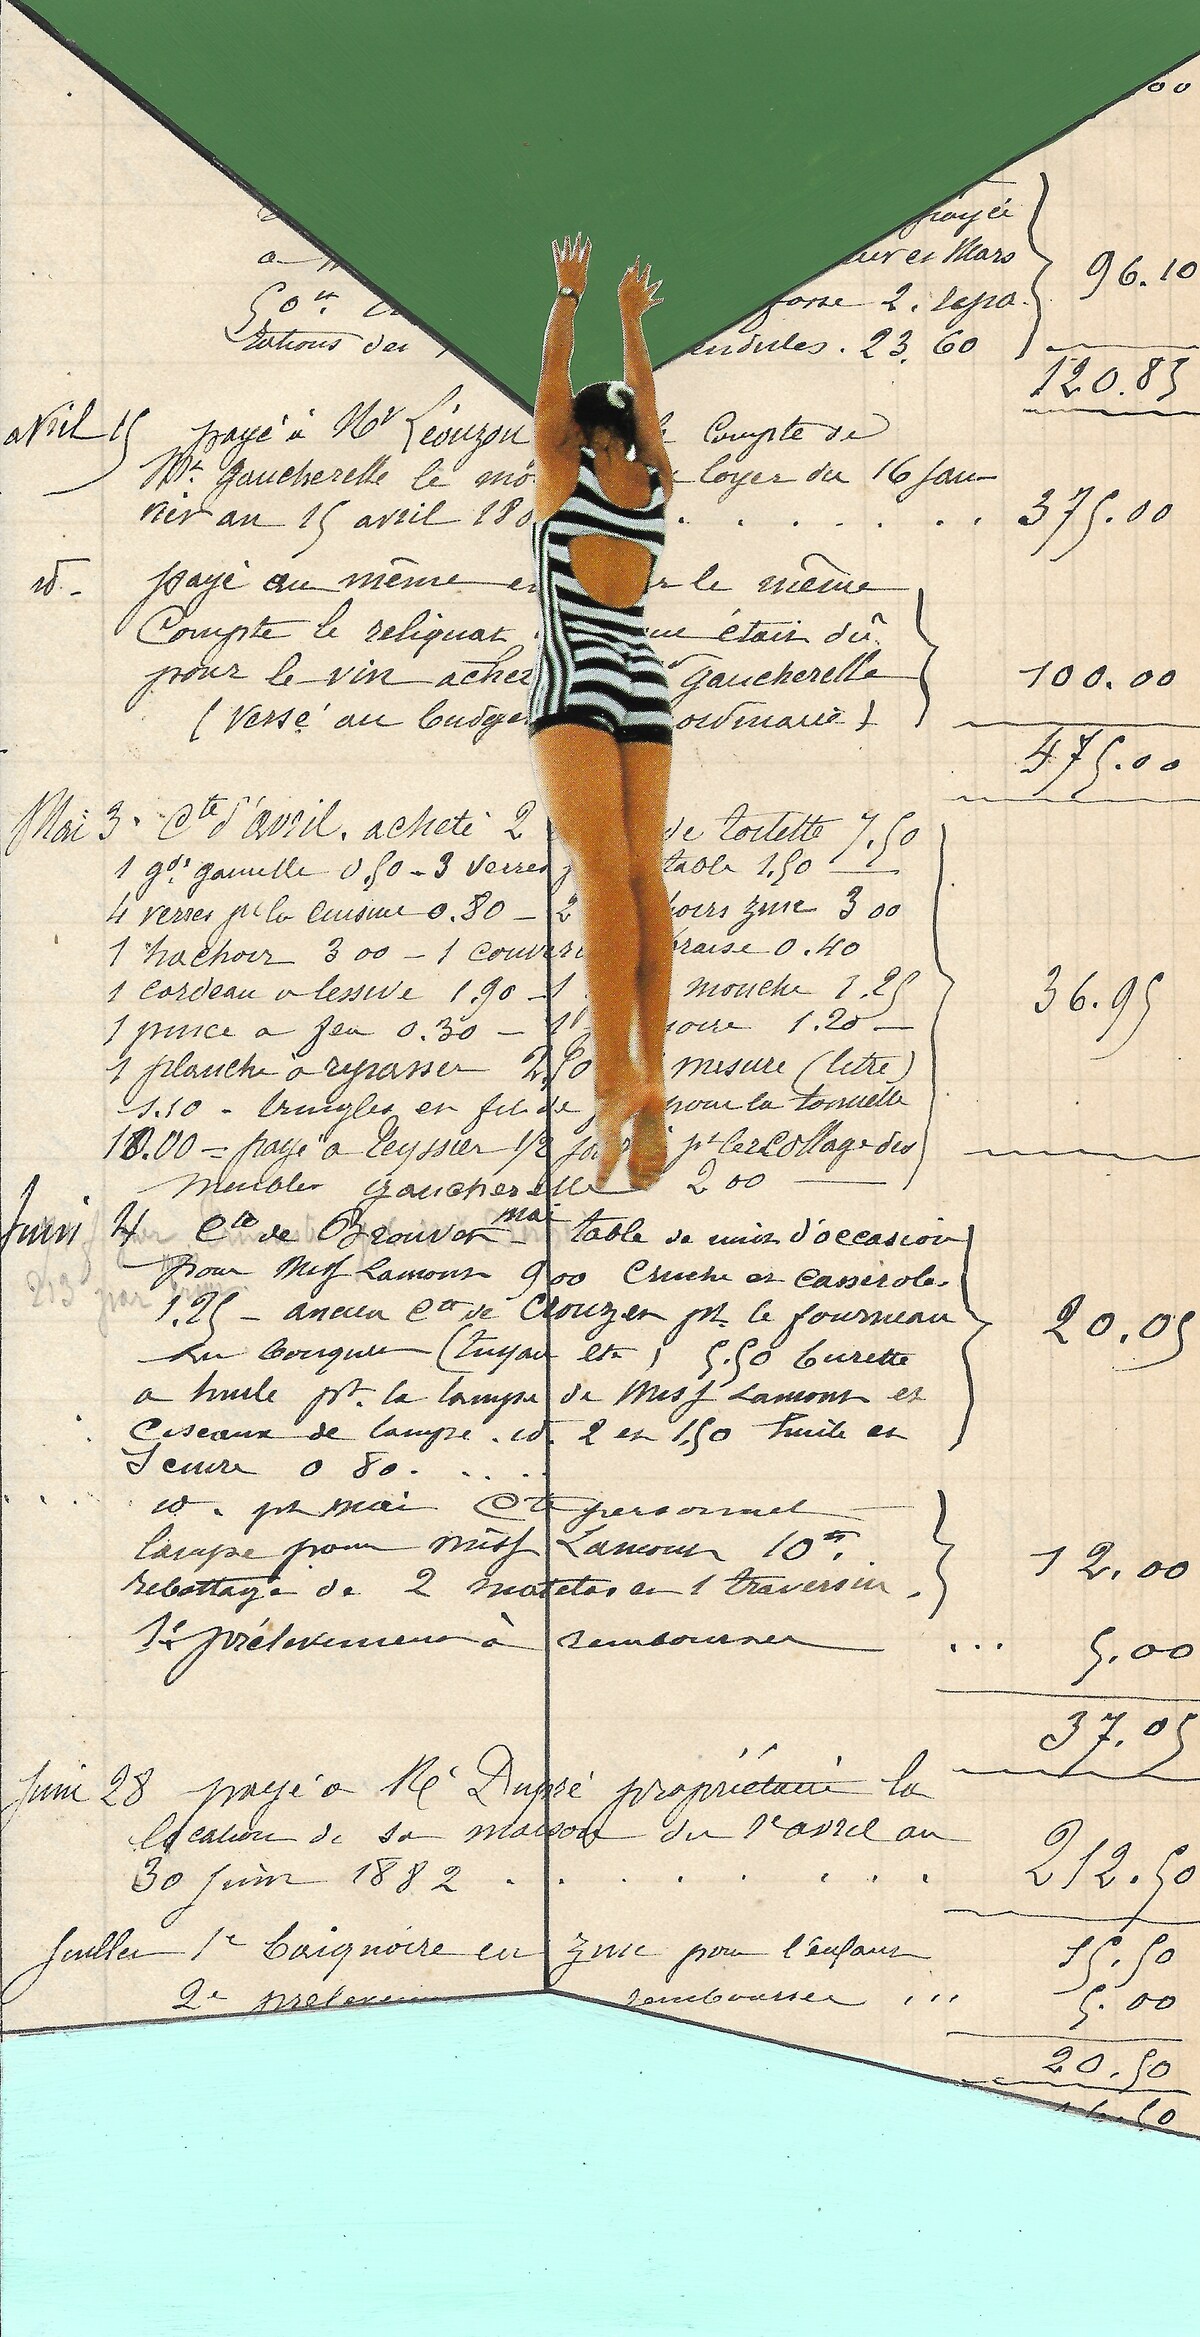 00
payé
a
et Mars
96.10
50 cs.
2. repa-
rations des
pendules. 23.60
120.85
avril 15 payé à Mr Léouzon le Compte de
Mr. Gaucherelle le loyer du 16 Jan-
vier au 15 avril 188 . . . . . . . 375.00
id- payé au même le même
Compte le reliquat était dû
pour le vin Gaucherelle 100.00
(versé au budget
475.00
Mai 3. Cte d'avril. acheté 2 de toilette 7.50
1 gde gamelle 0.50 - 3 verres table 1.50
4 verres pr la cuisine 0.80 - 2 zinc 3 00
1 hachoir 3 00 - 1 braise 0.40
1 cordeau a lessive 1.90 - 1 mouche 1.25
36.95
1 pince a feu 0.30 - 1 1.20 -
1 planche à repasser 2.50 mesure (litre)
1.10 - tringles en fil de pour la tonnelle
18.00 = payé a Teyssier 1/2 pr le recollage des
meubles gaucherelle 2 00
Juin 4 Cte de mai table de nuit d'occasion
pour Miss Lamont 9 00 Cruche et casserole
1.25 - ancien Cte de Crouzet pr. le fourneau
20.05
(tuyau etc) 5.50 burette
a huile pr. la lampe de Miss Lamont et
Ciseaux de lampe. id. 2 et 1.50 huile et
0 80. . . . .
id. pr mai Cte personnel
lampe pour miss Lamont 10 . 12.00
rebattage de 2 matelas et 1 traversin.
1er prélèvement à rembourser ... 5.00
37.05
Juin 28 payé a Mr Dupré propriétaire la
location de sa maison du 1er avril au
30 Juin 1882 . . . . . . . . 212.50
Juillet 1e baignoire en zinc pour l'enfant 15.50
2e rembourser ... 5.00
20.50